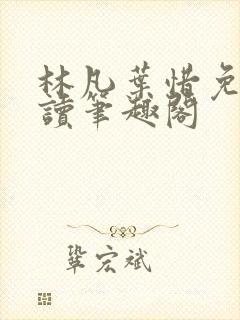 林凡葉惜免
讀筆趣閣
鞏宏斌